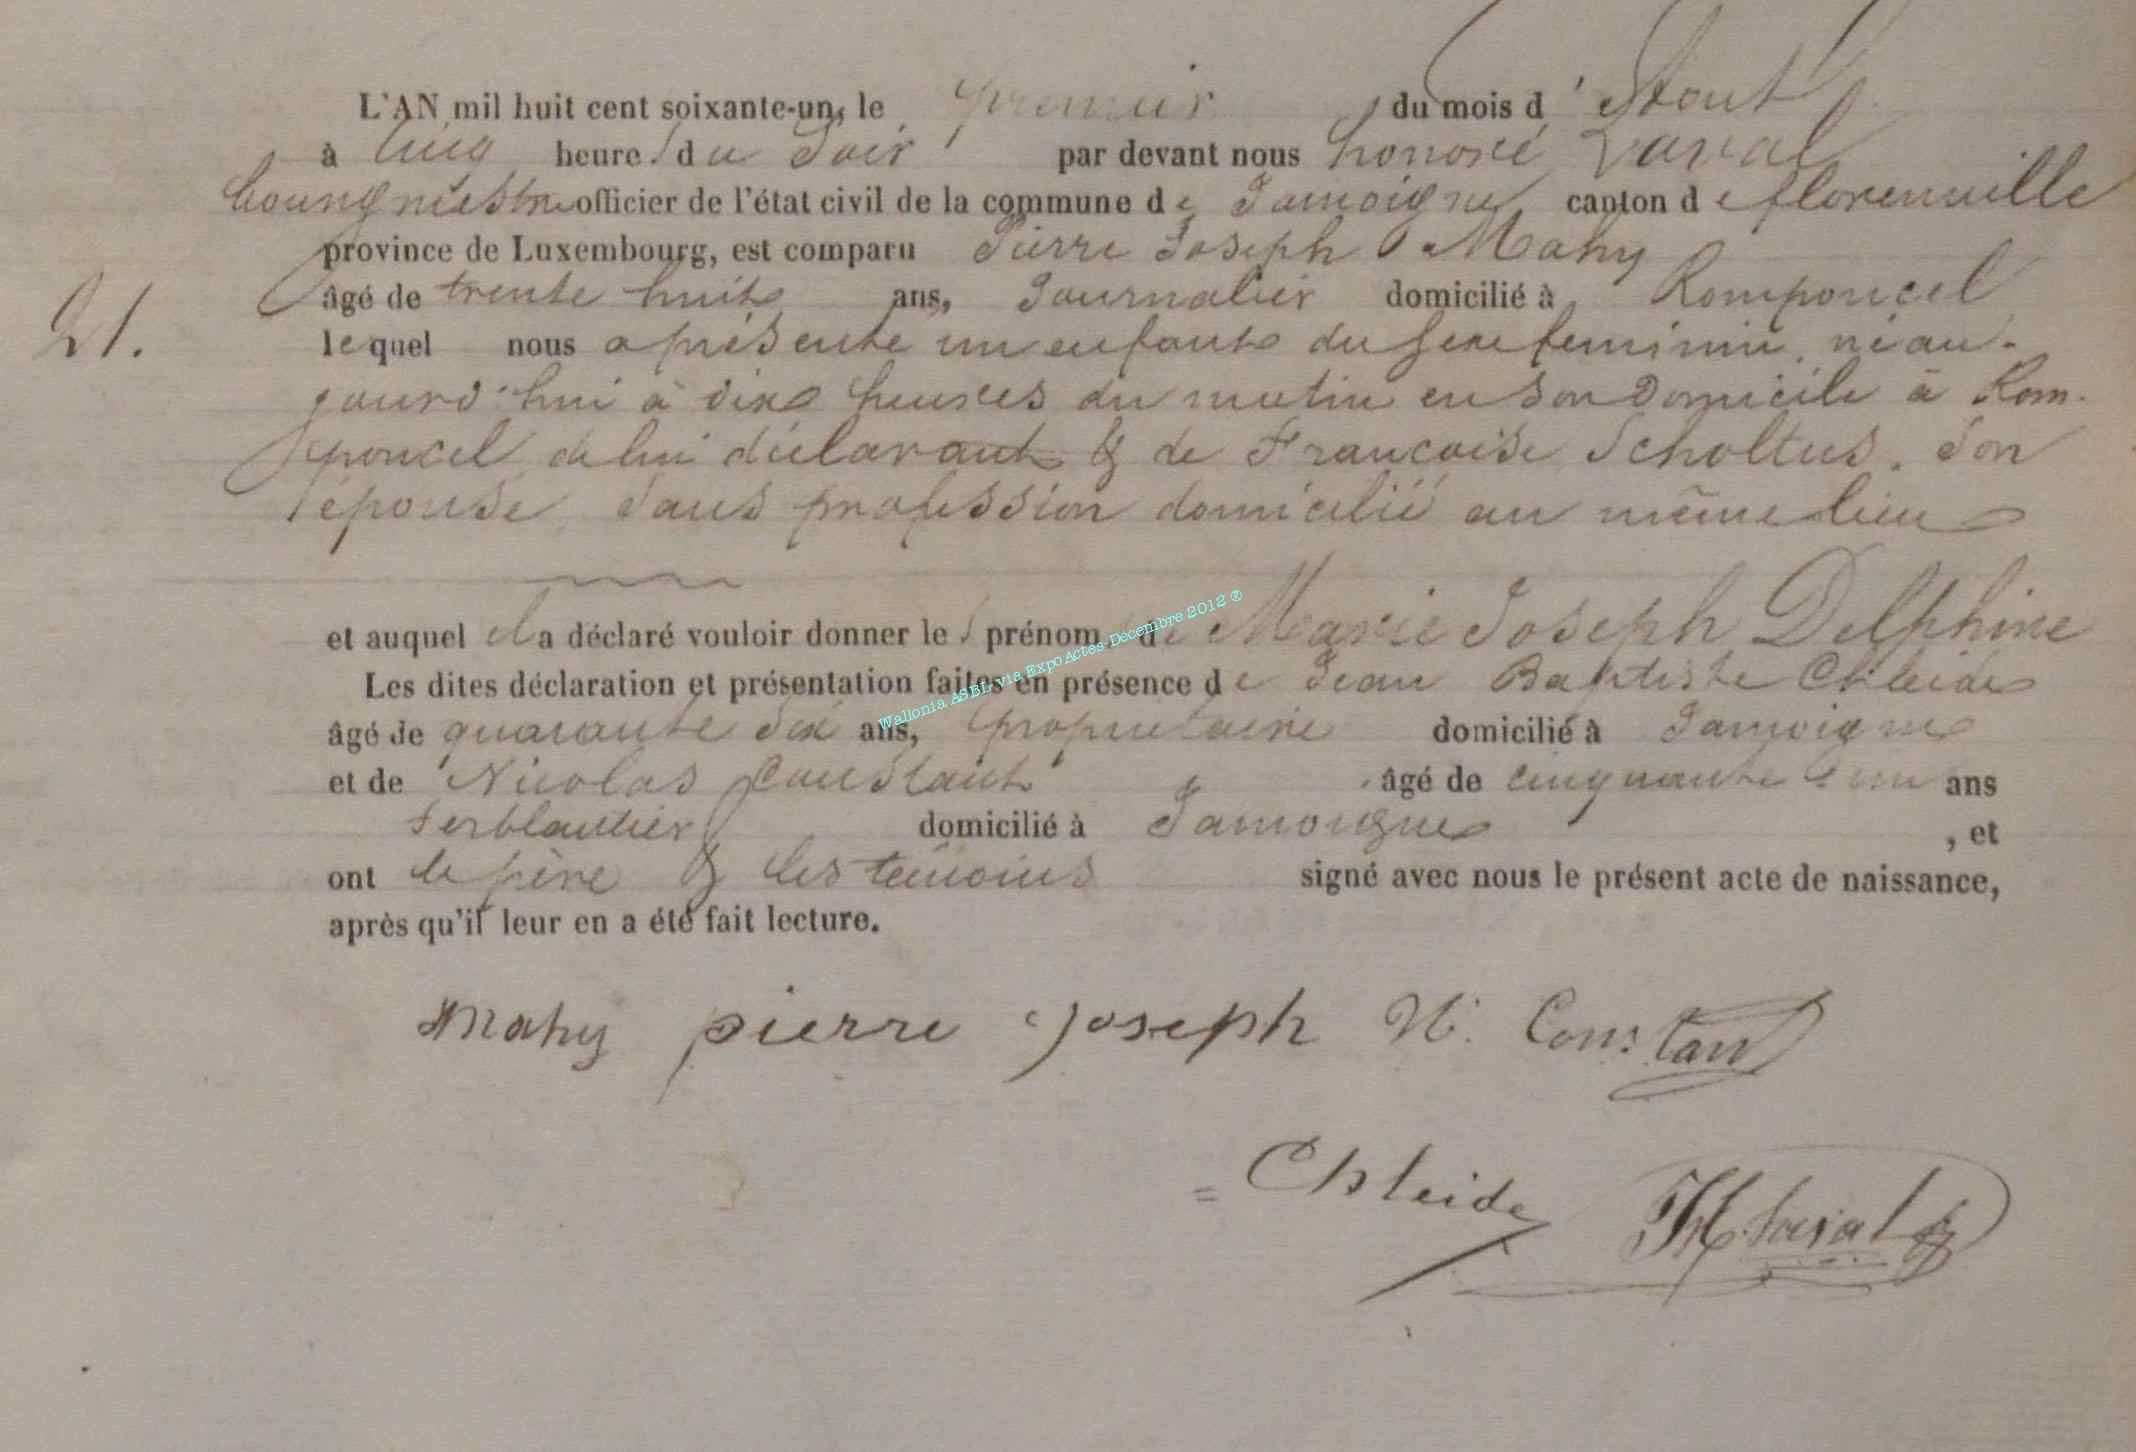 L'AN mil huit cent soixante-un, le premier du mois d'Aout
à cinq heures du Soir par devant nous honoré Laval
bourgmestre officier de l'état civil de la commune de Jamoigne canton de florenville
province de Luxembourg, est comparu Pierre Joseph Mahy
âgé de trente huit ans, Journalier domicilié à Romponcel
21. lequel nous a présenté un enfant du sexe feminin, né au-
jourd'hui à dix heures du matin en son Domicile à Rom-
poncel, de lui déclarant & de Francoise Scholtus, Son
épouse, Sans profession domicilié au même lieu
et auquel il a déclaré vouloir donner les prénoms de Marie Joseph Delphine
Les dites déclaration et présentation faites en présence de Jean Baptiste Chleide
âgé de quarante Six ans, propriétaire domicilié à Jamoigne
et de Nicolas Constant âgé de cinquante & un ans
ferblantier domicilié à Jamoigne, et
ont le père & les témoins signé avec nous le présent acte de naissance,
après qu'il leur en a été fait lecture.
Mahy pierre Joseph N. Constan
Chleide H. Laval
Wallonia ASBL via ExpoActes Decembre 2012 ®